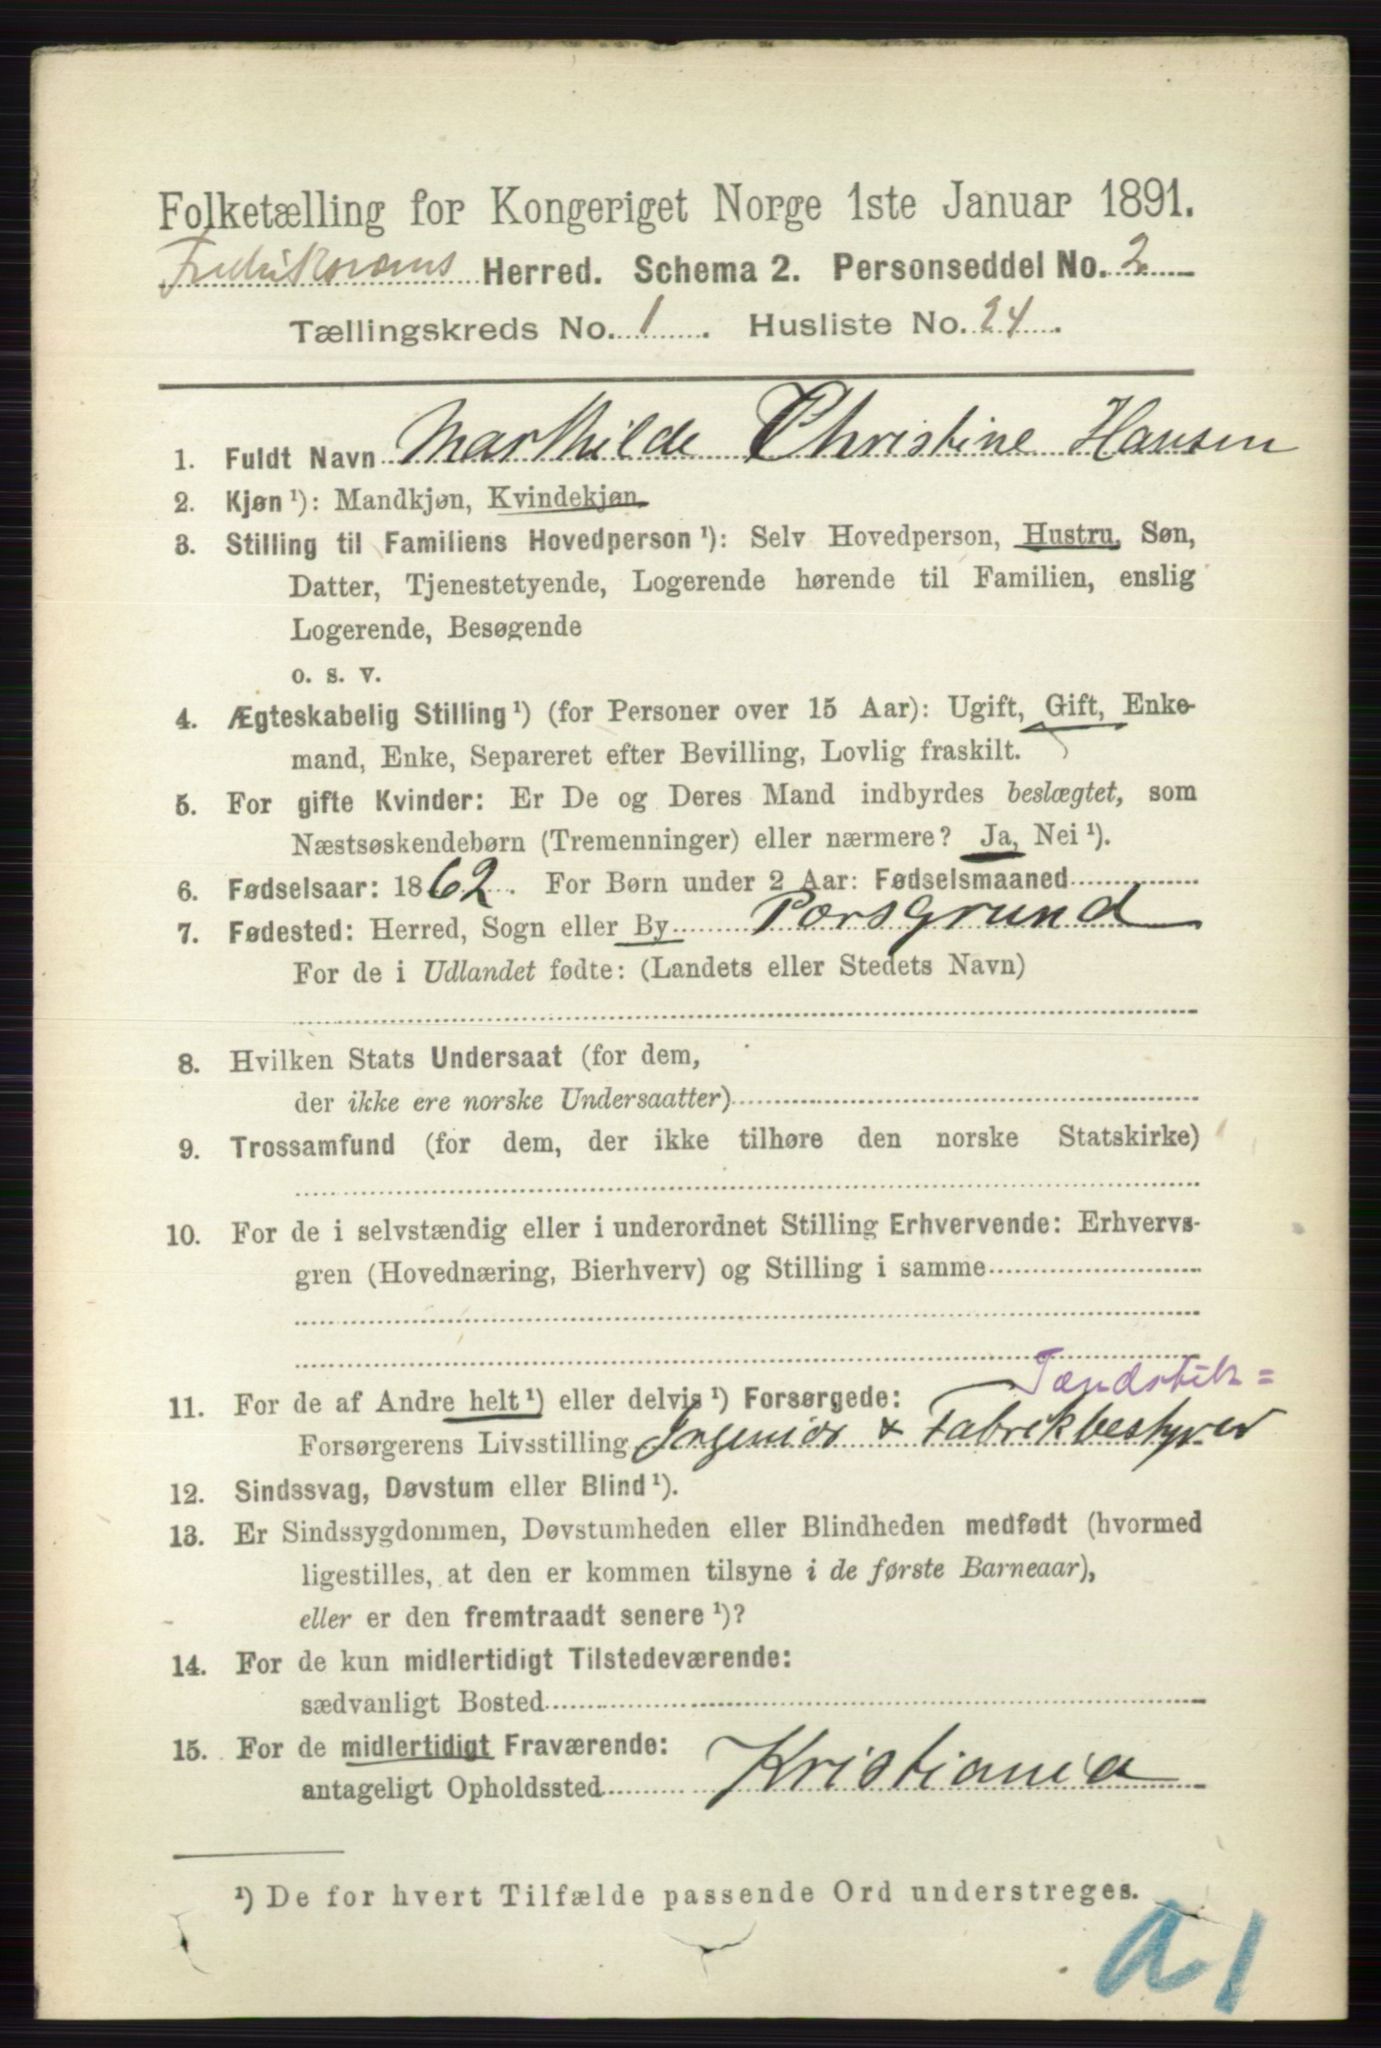 Folketælling for Kongeriget Norge 1ste Januar 1891.
Fredriksværns Herred. Schema 2. Personseddel No. 2
Tællingskreds No. 1. Husliste No. 24.
1. Fuldt Navn Marthilde Christine Hansen
2. Kjøn ¹): Mandkjøn, Kvindekjøn
3. Stilling til Familiens Hovedperson ¹): Selv Hovedperson, Hustru, Søn,
Datter, Tjenestetyende, Logerende hørende til Familien, enslig
Logerende, Besøgende
o. s. v.
4. Ægteskabelig Stilling ¹) (for Personer over 15 Aar): Ugift, Gift, Enke-
mand, Enke, Separeret efter Bevilling, Lovlig fraskilt.
5. For gifte Kvinder: Er De og Deres Mand indbyrdes beslægtet, som
Næstsøskendebørn (Tremenninger) eller nærmere? Ja, Nei ¹).
6. Fødselsaar: 1862. For Børn under 2 Aar: Fødselsmaaned
7. Fødested: Herred, Sogn eller By Porsgrund
For de i Udlandet fødte: (Landets eller Stedets Navn)
8. Hvilken Stats Undersaat (for dem,
der ikke ere norske Undersaatter)
9. Trossamfund (for dem, der ikke tilhøre den norske Statskirke)
10. For de i selvstændig eller i underordnet Stilling Erhvervende: Erhvervs-
gren (Hovednæring, Bierhverv) og Stilling i samme
Tændstik=
11. For de af Andre helt ¹) eller delvis ¹) Forsørgede:
Forsørgerens Livsstilling Ingeniør & Fabrikbestyrer
12. Sindssvag, Døvstum eller Blind ¹).
13. Er Sindssygdommen, Døvstumheden eller Blindheden medfødt (hvormed
ligestilles, at den er kommen tilsyne i de første Barneaar),
eller er den fremtraadt senere ¹)?
14. For de kun midlertidigt Tilstedeværende:
sædvanligt Bosted
15. For de midlertidigt Fraværende:
antageligt Opholdssted Kristiania
¹) De for hvert Tilfælde passende Ord understreges.
a 1